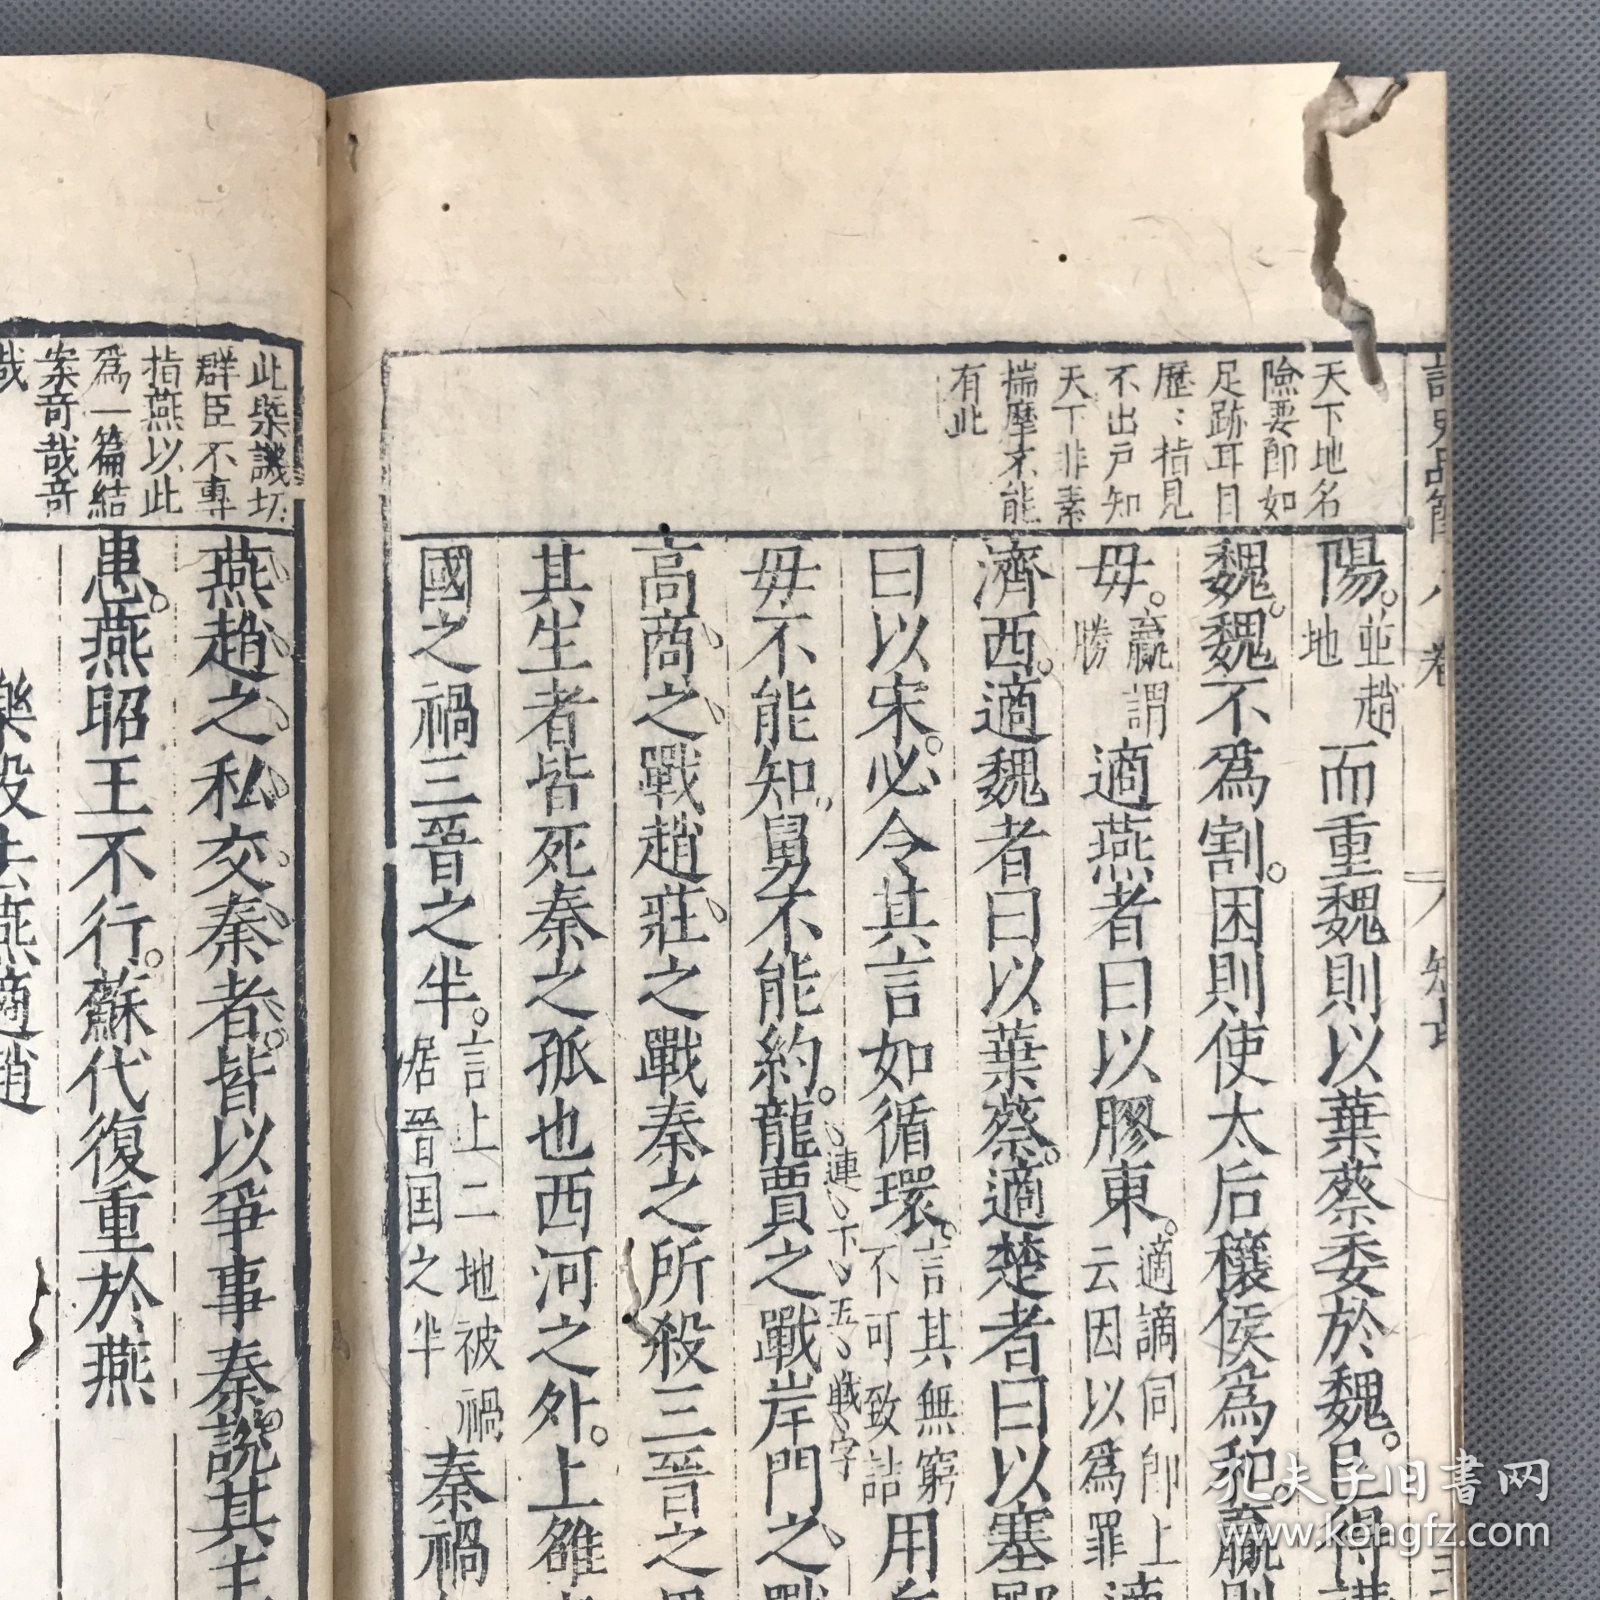 天下地名
險要即如
足跡耳目
歷〻指見
不出戸知
天下非素
揣摩不能
有此
陽。並趙地而重魏則以葉蔡委於魏。已得講
魏。魏不爲割。困則使太后穰侯爲和。嬴則
毋。嬴謂勝適燕者曰以膠東。適謫同即上云因以爲罪適
濟西。適魏者曰以葉蔡。適楚者曰以塞鄳
曰以宋。必令其言如循環。言其無窮不可致詰用兵
毋不能知舅不能約。龍賈之戰岸門之戰
連下五戰字
高商之戰趙莊之戰秦之所殺三晉之民
其生者皆死秦之孤也西河之外。上雒
國之禍三晉之半。言上二地被禍居晉国之半秦禍
此槩譏切
群臣不專
指燕以此
爲一篇結
案奇哉奇
哉
燕趙之私交秦者。皆以爭事秦。說其主
患。燕昭王不行。蘇代復重於燕
樂毅去燕適趙
孔夫子旧書网
www.kongfz.com